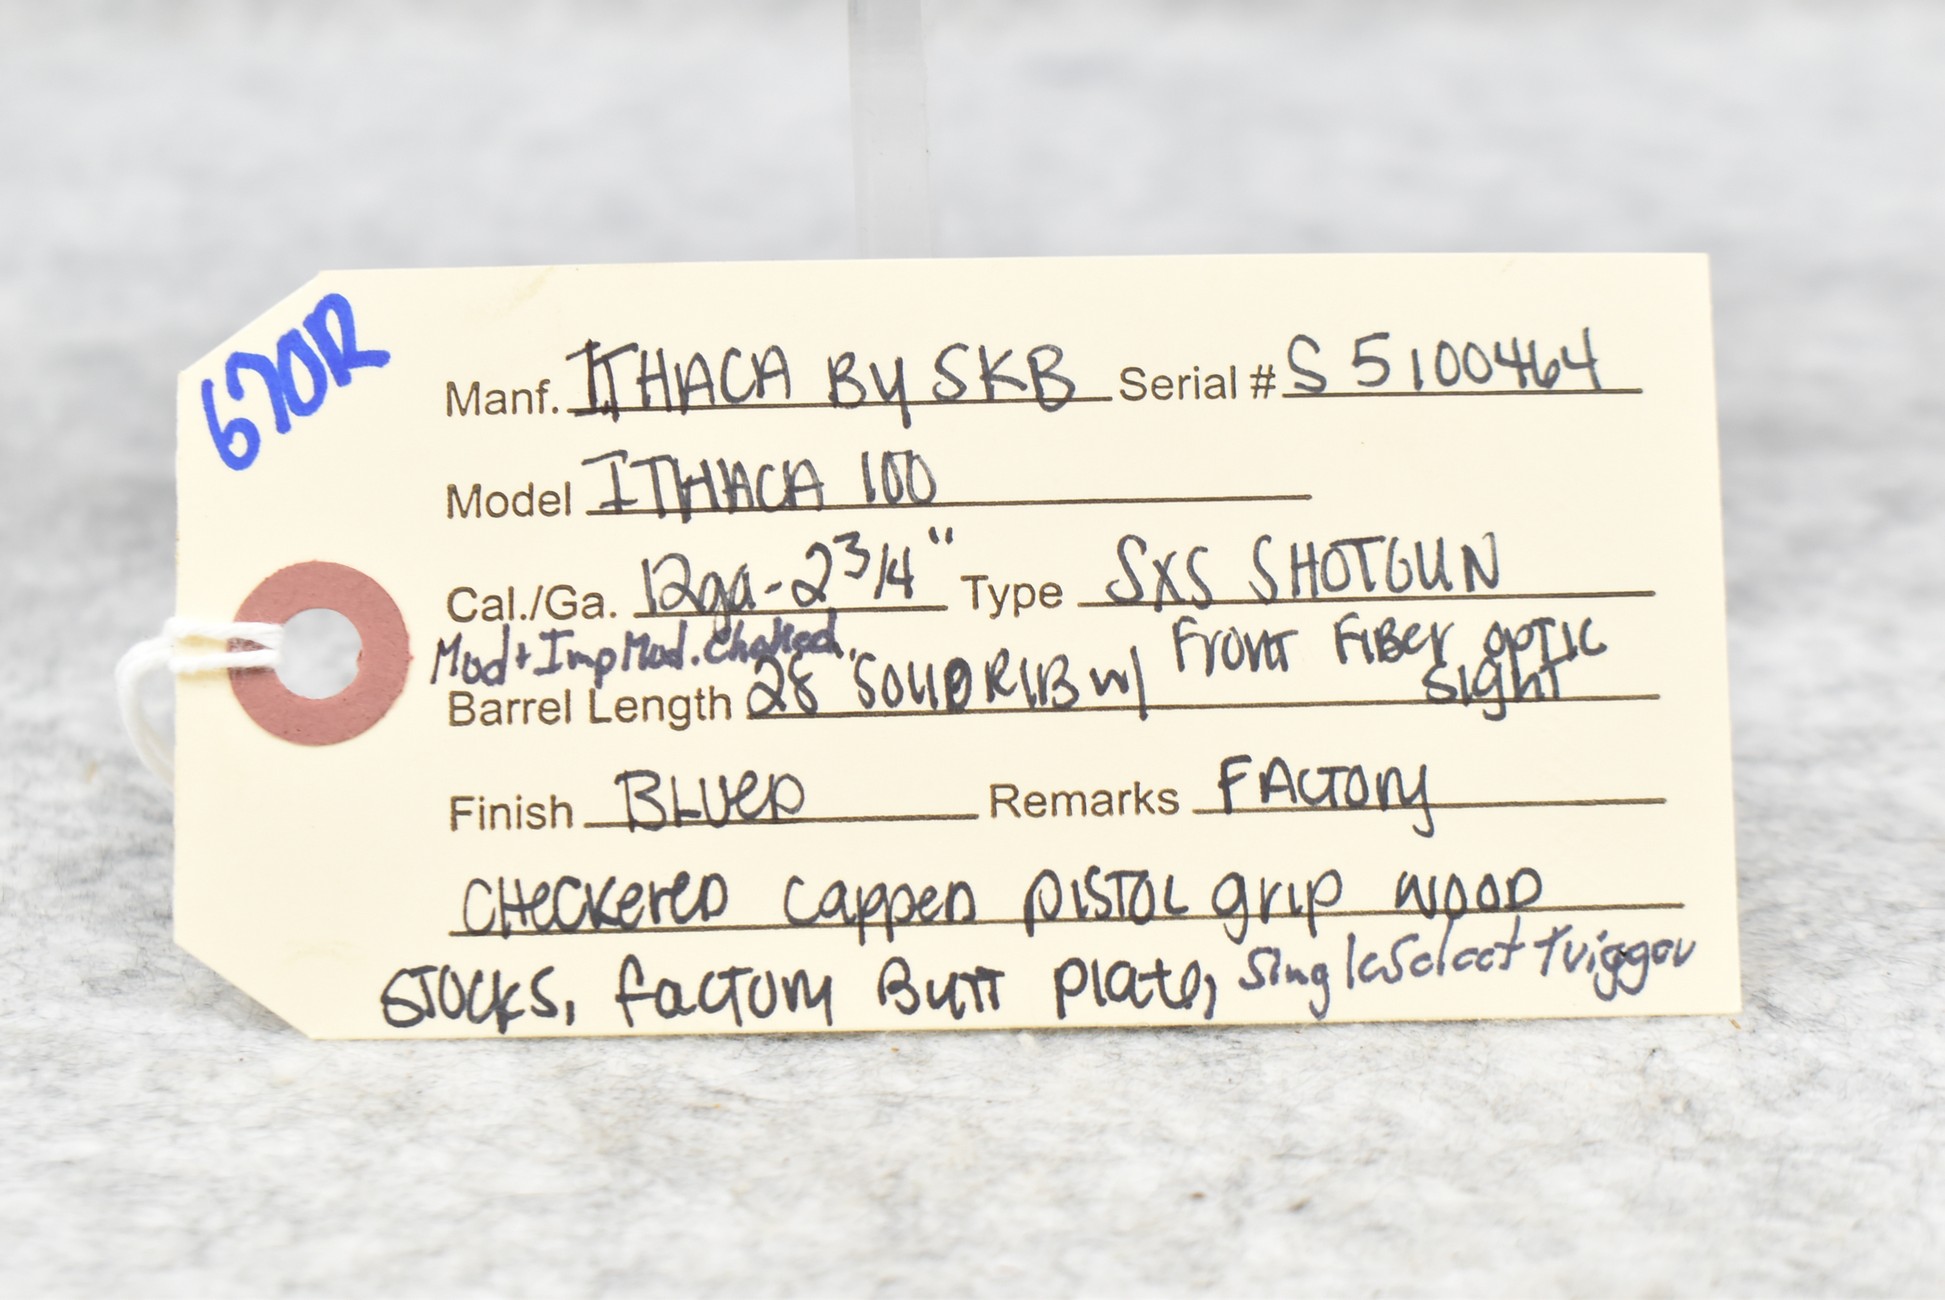 670R
Manf. ITHACA BY SKB Serial # S5100464
Model ITHACA 100
Cal./Ga. 12ga-2 3/4" Type SXS SHOTGUN
Mod + Imp Mod. Choked.
Barrel Length 28" SOLID RIB w/ Front FIBer OPTIC
Sight
Finish BLUED Remarks FACTORY
CHeCKereD CAPPeD PISTOL grip WOOD
STOCKS, FACTORY BUTT PLATE, Single Select Trigger